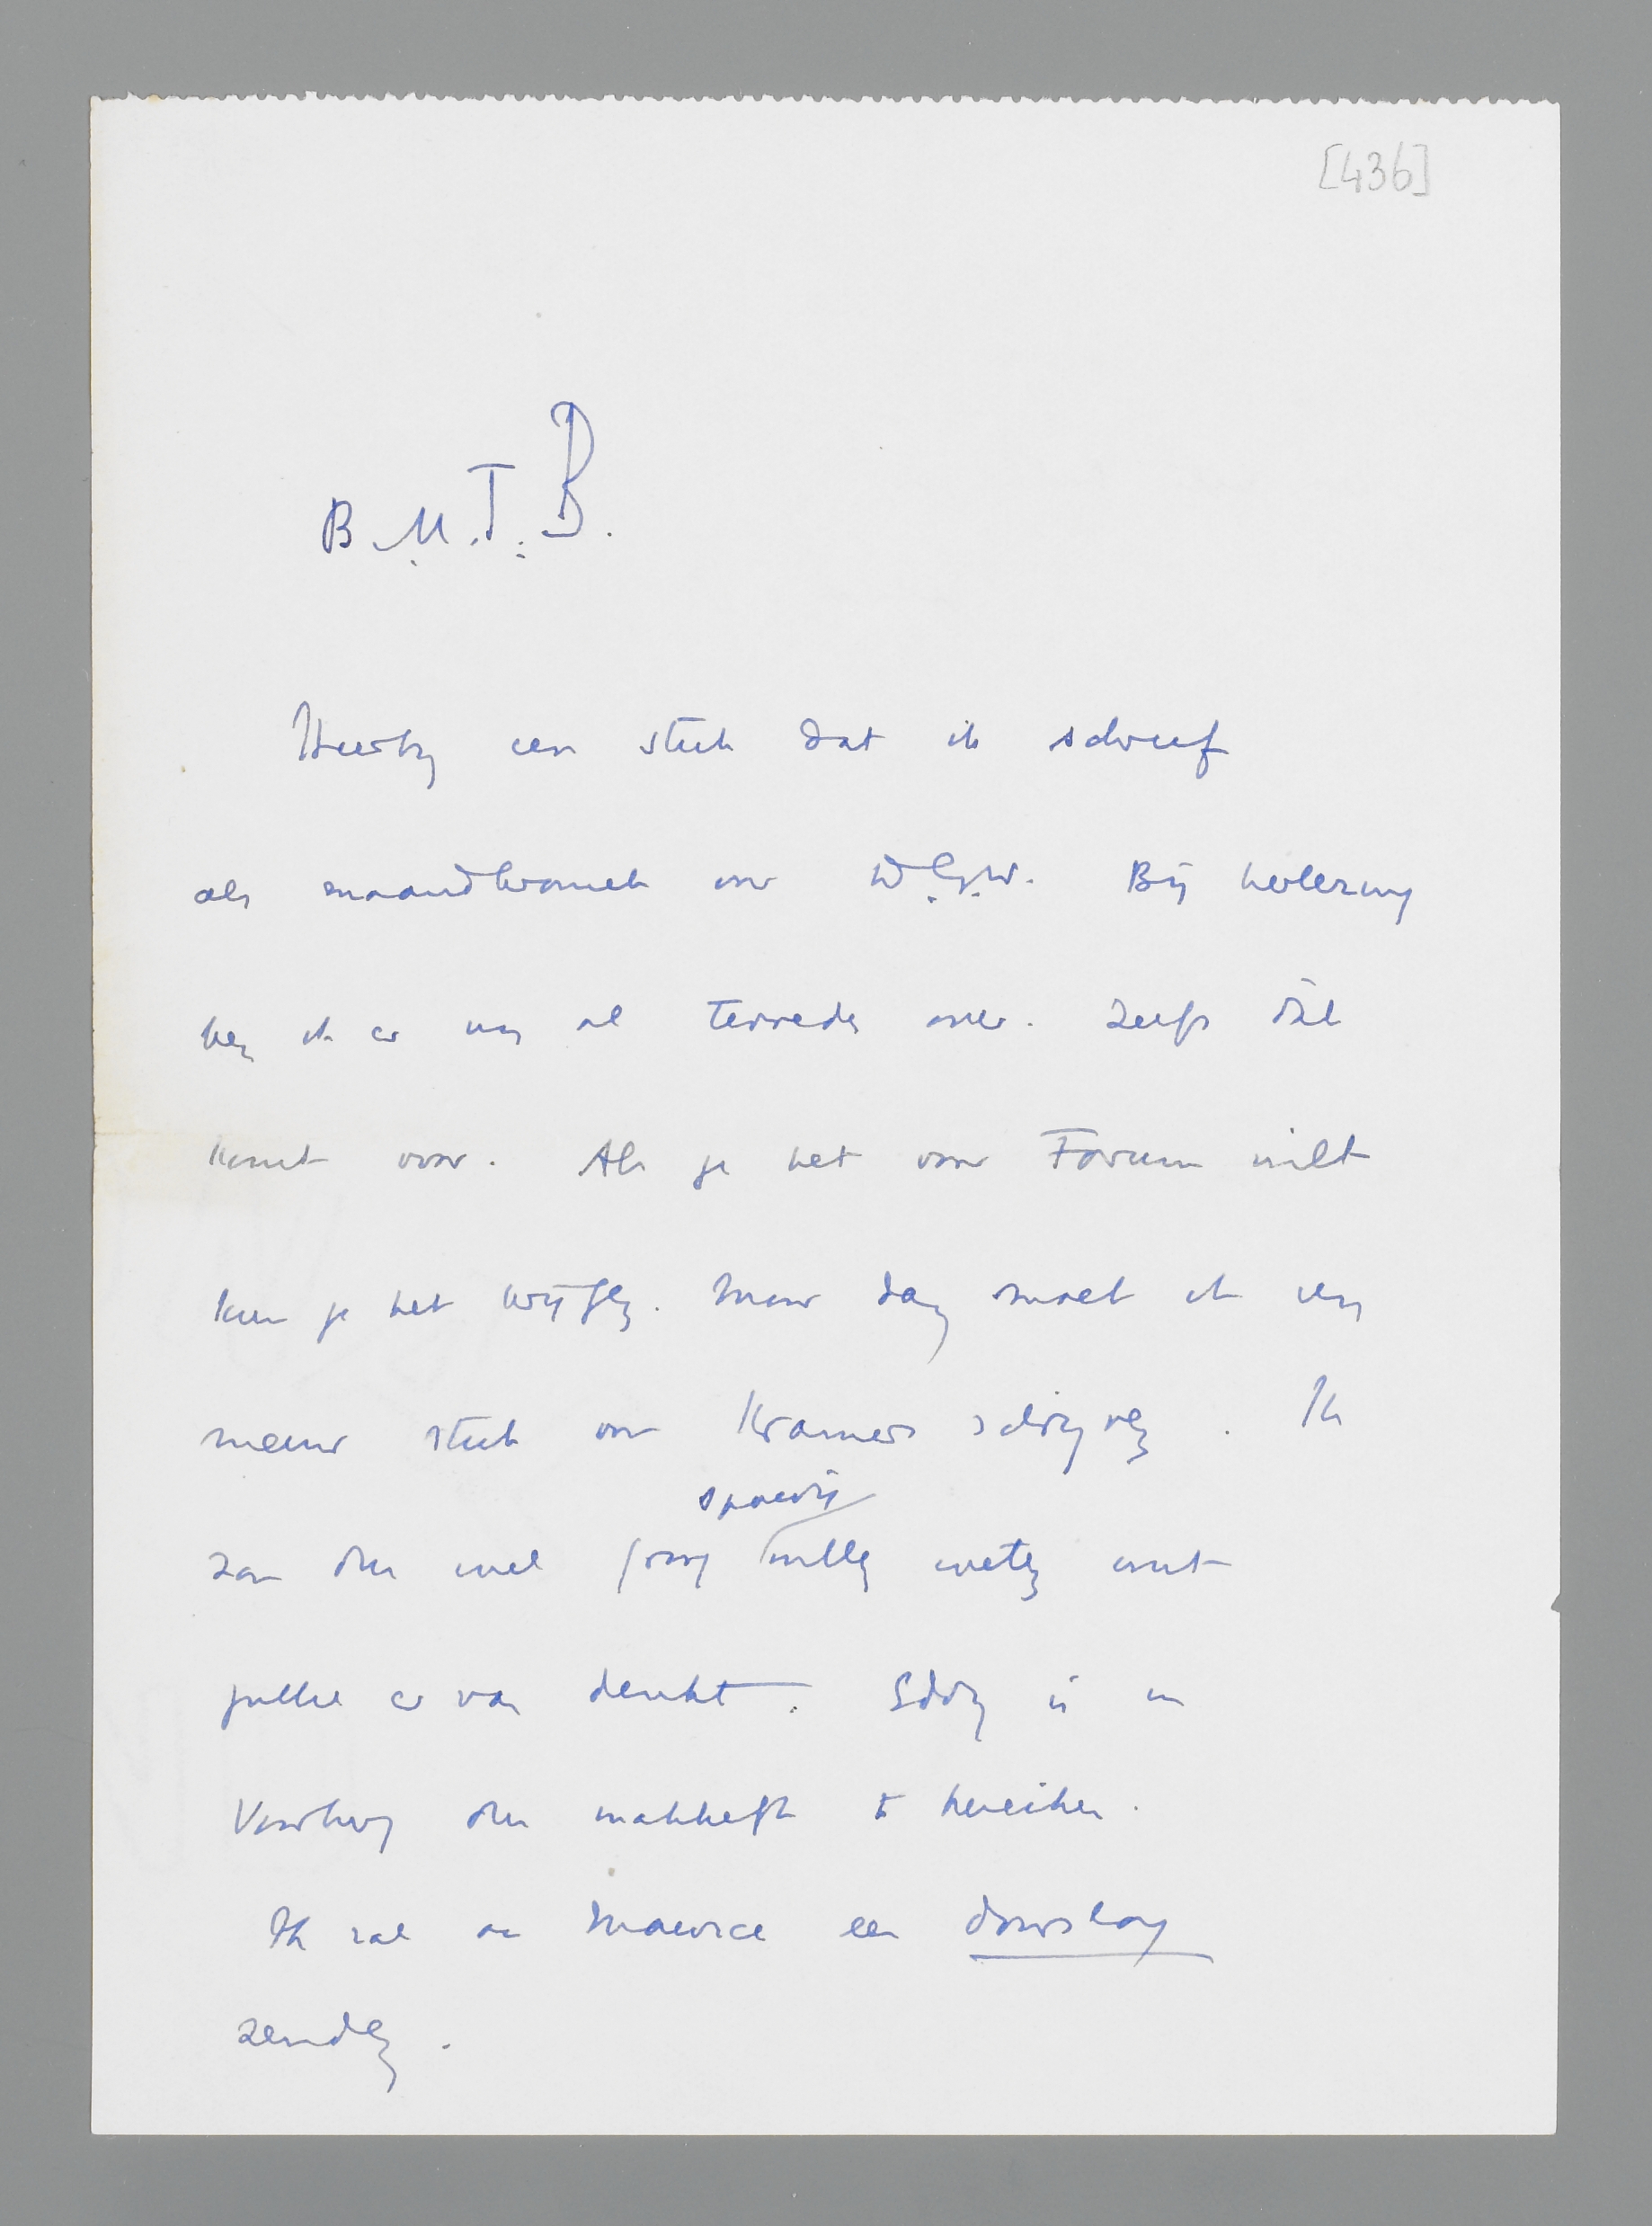 [436]
B.M.T.B.
Hierbij een stuk dat ik schreef
als maandkroniek voor D.G.W. Bij herlezing
ben ik er nog al tevreden over. Zelfs
komt voor. Als je het voor Forum wilt
kun je het krijgen. Maar dan moet ik een
nieuw stuk voor Kramers schrijven. Ik
spoedig
zou dus wel graag willen weten wat
jullie er van denkt. Eddy is in
Voorburg dus makkelijk te bereiken.
Ik zal aan Maurice een doorslag
zenden.